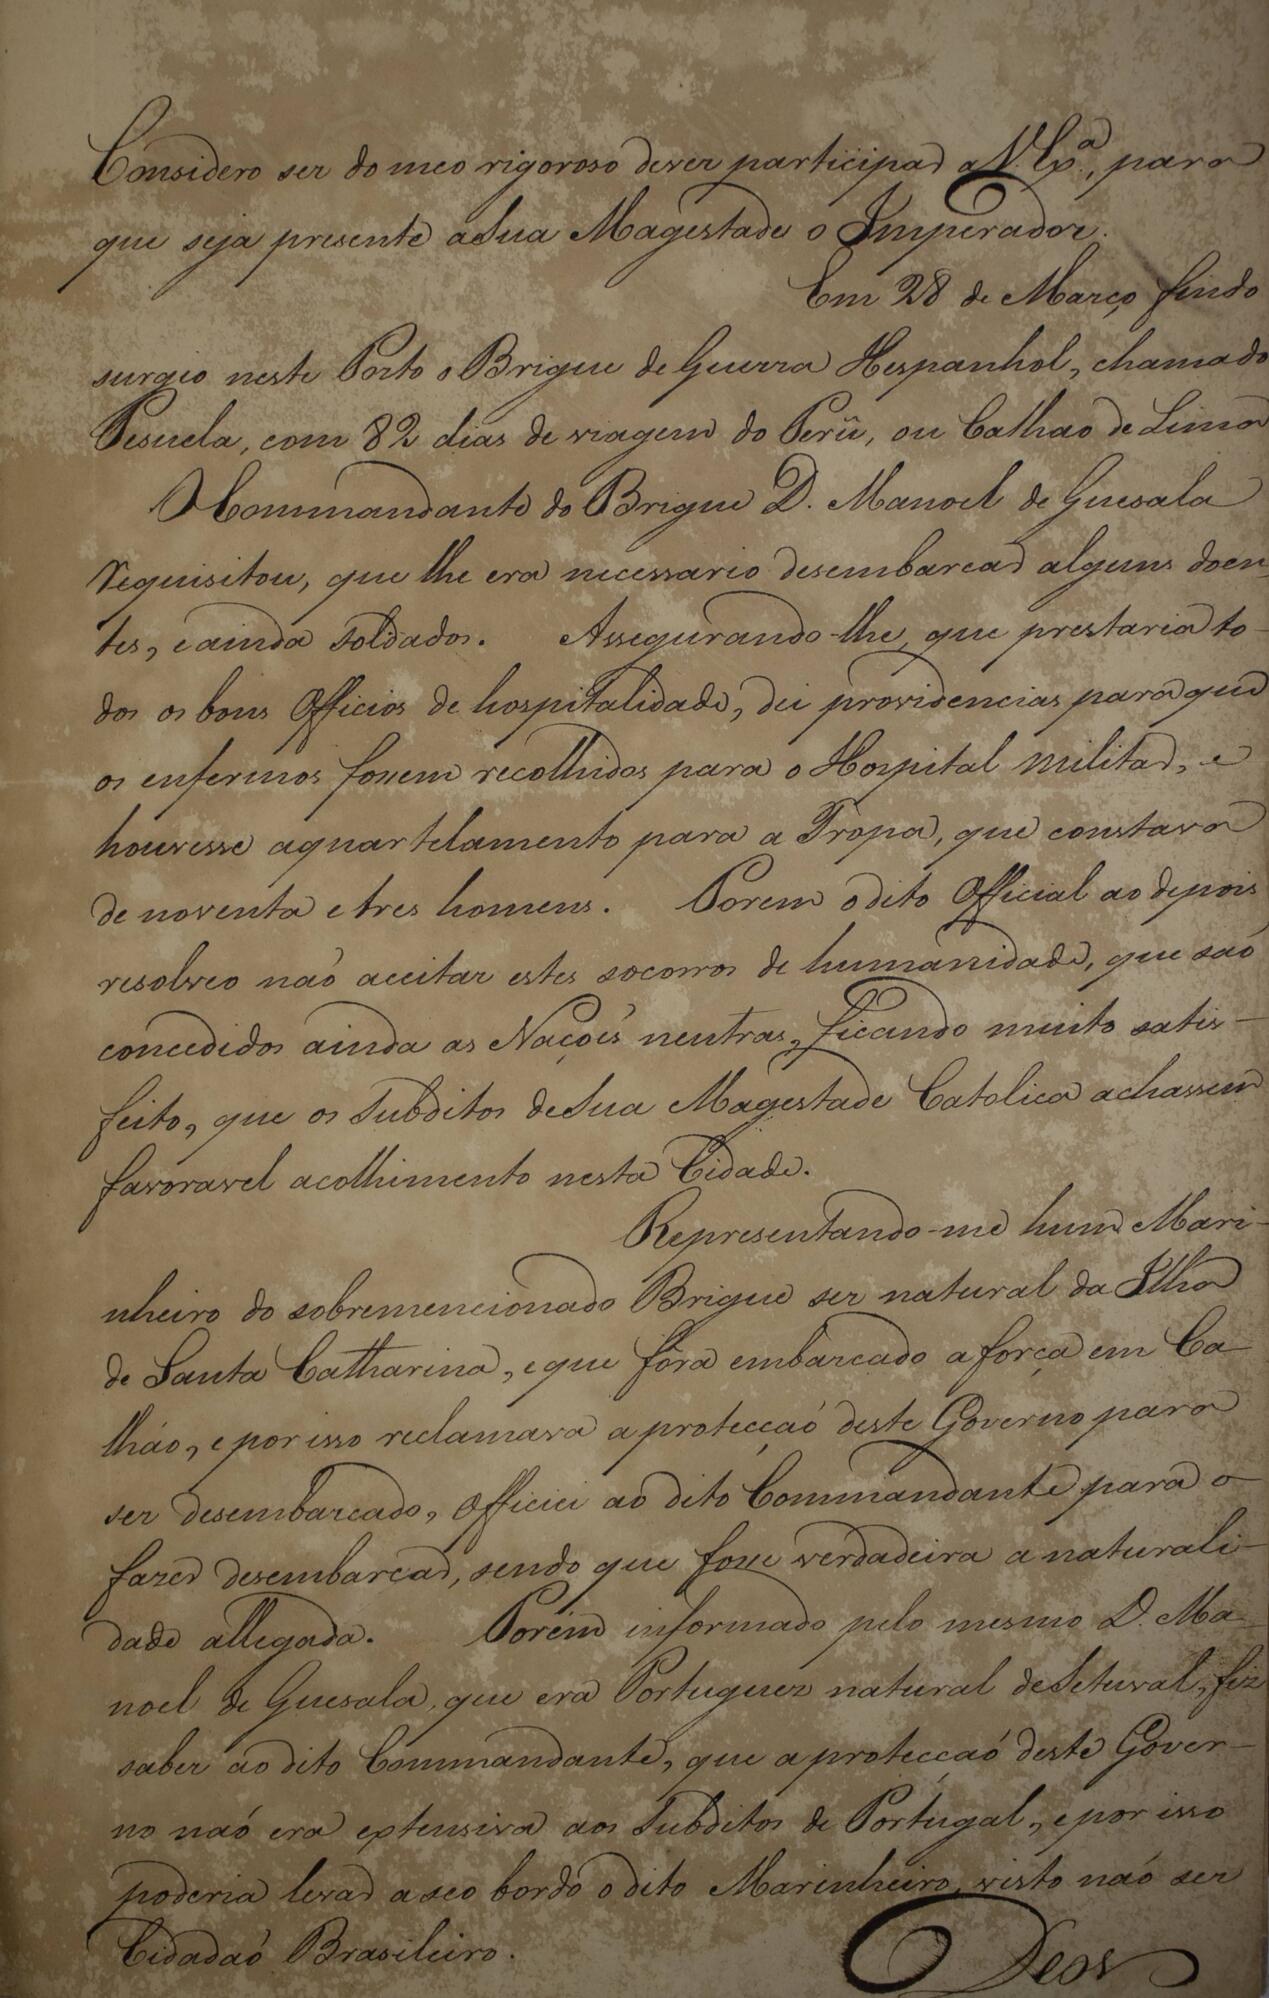 Considero ser do meo rigoroso dever participar a V. Ex.ª, para
que seja presente a Sua Magestade o Imperador.
Em 28 de Março findo
surgio neste Porto o Brigue de Guerra Hespanhol, chamado
Pesuela, com 82 dias de viagem do Perû, ou Calhao de Lima
O Commandante do Brigue D. Manoel de Guesala
requisitou, que lhe era necessario desembarcar alguns doen-
tes, e ainda soldados. Assegurando-lhe, que prestaria to-
dos os bons Officios de hospitalidade, dei providencias para que
os enfermos fossem recolhidos para o Hospital militar, e
houvesse aquartelamento para a Tropa, que constava
de noventa e tres homens. Porem o dito Official ao depois
resolveo naó aceitar estes socorros de humanidade, que saó
concedidos ainda as Naçoés neutras, ficando muito satis-
feito, que os Subditos de Sua Magestade Catolica achassem
favoravel acolhimento nesta Cidade.
Representando-me hum Mari-
nheiro do sobremencionado Brigue ser natural da Ilha
de Santa Catharina, e que fôra embarcado a força em Ca-
lháo, e por isso reclamava a protecçaó deste Governo para
ser desembarcado, Officiei ao dito Commandante para o
fazer desembarcar, sendo que fosse verdadeira a naturali-
dade allegada. Porém informado pelo mesmo D. Ma-
noel de Guesala, que era Portuguez natural de Setuval, fiz
saber ao dito Commandante, que a protecçaó deste Gover-
no naó era extensiva aos Subditos de Portugal, e por isso
poderia levar a seo bordo o dito Marinheiro, visto naó ser
Cidadaó Brasileiro.
Deos